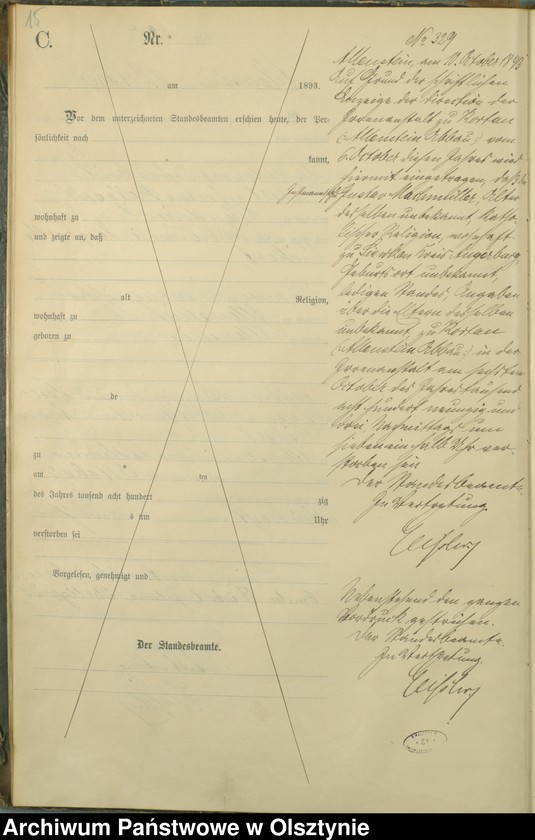 15
C.
Nr.
am 1893.
Vor dem unterzeichneten Standesbeamten erschien heute, der Per-
sönlichkeit nach
kannt,
wohnhaft zu
und zeigte an, daß
alt Religion,
wohnhaft zu
geboren zu
de
zu
am ten
des Jahres tausend acht hundert zig
s um Uhr
verstorben sei
Vorgelesen, genehmigt und
Der Standesbeamte.
No 329
Allenstein, am 10. October 1893
Auf Grund der schriftlichen
Anzeige der Direction der
Irrenanstalt zu Kortau
(Allenstein Abbau) vom
6 October diesen Jahres wird
hiermit eingetragen, daß der
Gustav Alter
desselben unbekannt, katho-
lischer Religion, wohnhaft
zu Kreis Angerburg
Geburtsort unbekannt,
ledigen Standes, Angaben
über die Eltern desselben
unbekannt, zu Kortau
(Allenstein Abbau) in der
Irrenanstalt am sechsten
October des Jahres tausend
acht hundert neunzig und
drei, Nachmittags um
sieben ein halb Uhr ver-
storben sei
Der Standesbeamte.
In Vertretung.
Nebenstehend den ganzen
Vordruck gestrichen.
Der Standesbeamte
In Vertretung.
Archiwum Państwowe w Olsztynie